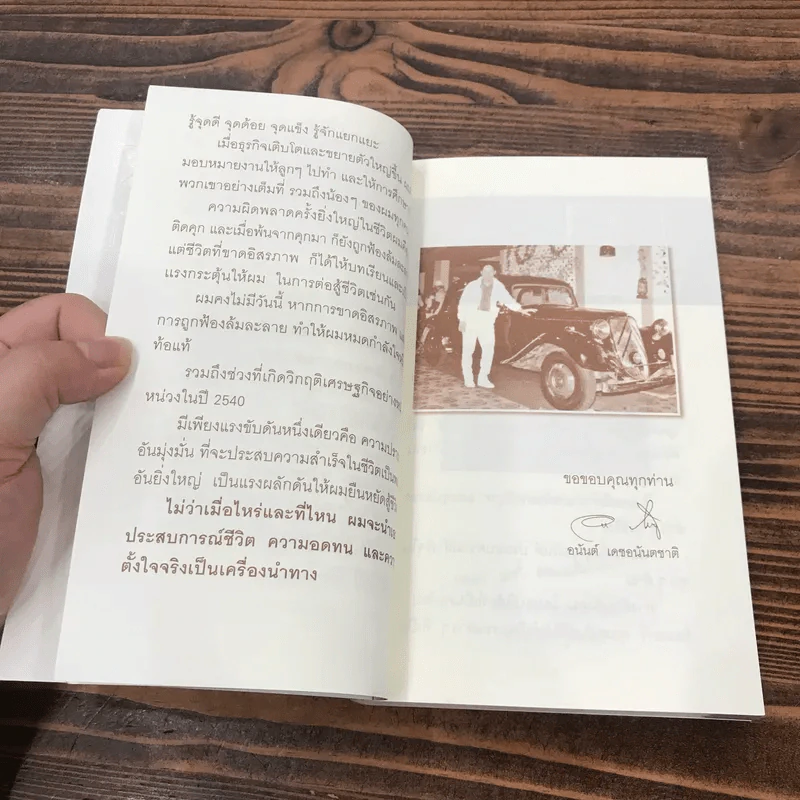 รู้จุดดี จุดด้อย จุดแข็ง รู้จักแยกแยะ
เมื่อธุรกิจเติบโตและขยายตัวใหญ่ขึ้น
มอบหมายงานให้ลูกๆ ไปทำ และให้การศึกษา
พวกเขาอย่างเต็มที่ รวมถึงน้องๆ ของผมทุก
ความผิดพลาดครั้งยิ่งใหญ่ในชีวิตผม
ติดคุก และเมื่อพ้นจากคุกมา ก็ยังถูกฟ้องล้มละ
แต่ชีวิตที่ขาดอิสรภาพ ก็ได้ให้บทเรียนและ
แรงกระตุ้นให้ผม ในการต่อสู้ชีวิตเช่นกัน
ผมคงไม่มีวันนี้ หากการขาดอิสรภาพ
การถูกฟ้องล้มละลาย ทำให้ผมหมดกำลังใจ
ท้อแท้
รวมถึงช่วงที่เกิดวิกฤติเศรษฐกิจอย่าง
หน่วงในปี 2540
มีเพียงแรงขับดันหนึ่งเดียวคือ ความ
อันมุ่งมั่น ที่จะประสบความสำเร็จในชีวิตเป็น
อันยิ่งใหญ่ เป็นแรงผลักดันให้ผมยืนหยัดสู้
ไม่ว่าเมื่อไหร่และที่ไหน ผมจะนำ
ประสบการณ์ชีวิต ความอดทน และ
ตั้งใจจริงเป็นเครื่องนำทาง
ขอขอบคุณทุกท่าน
อนันต์ เดชอนันตชาติ